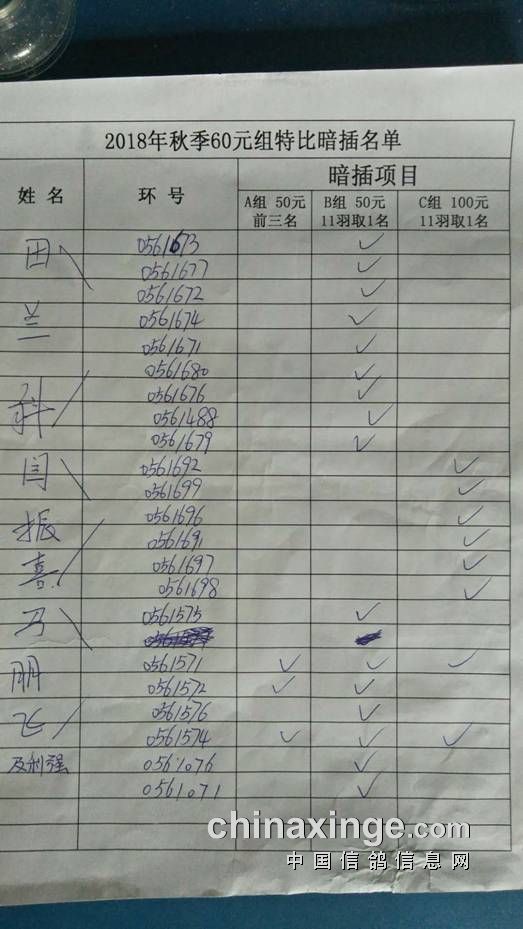 2018年秋季60元组特比暗插名单
姓 名 环 号 暗插项目
A组 50元 前三名 B组 50元 11羽取1名 C组 100元 11羽取1名
田兰科 0561673 ✓
0561677 ✓
0561672 ✓
0561674 ✓
0561671 ✓
0561680 ✓
0561676 ✓
0561488 ✓
0561679 ✓
闫振喜 0561692 ✓
0561699 ✓
0561696 ✓
0561691 ✓
0561697 ✓
0561698 ✓
马朋飞 0561575 ✓
0561571 ✓ ✓ ✓
0561572 ✓ ✓
0561576 ✓
0561574 ✓ ✓ ✓
及利强 0561076 ✓
0561071 ✓
chinaxinge.com
中国信鸽信息网